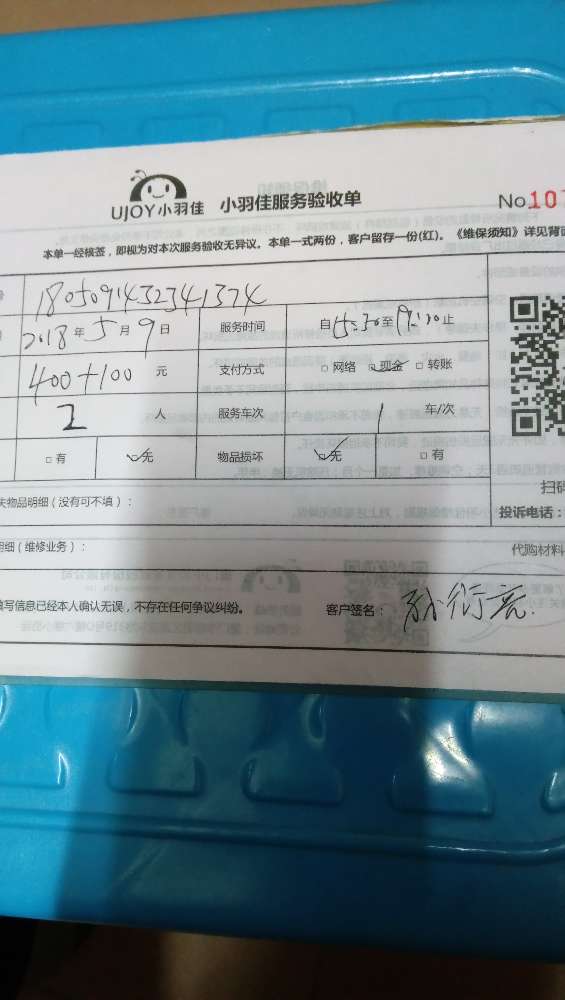 UJOY小羽佳 小羽佳服务验收单 No.107
本单一经核签，即视为对本次服务验收无异议。本单一式两份，客户留存一份(红)。《维保须知》详见背面
1805091432341374
2018年5月9日 服务时间 自15:30至19:10止
400+100 元 支付方式 □网络 ☑现金 □转账
2 人 服务车次 1 车/次
□有 ☑无 物品损坏 ☑无 □有
失物品明细（没有可不填）：
扫码
投诉电话：
明细（维修业务）： 代购材料
填写信息已经本人确认无误，不存在任何争议纠纷。 客户签名：